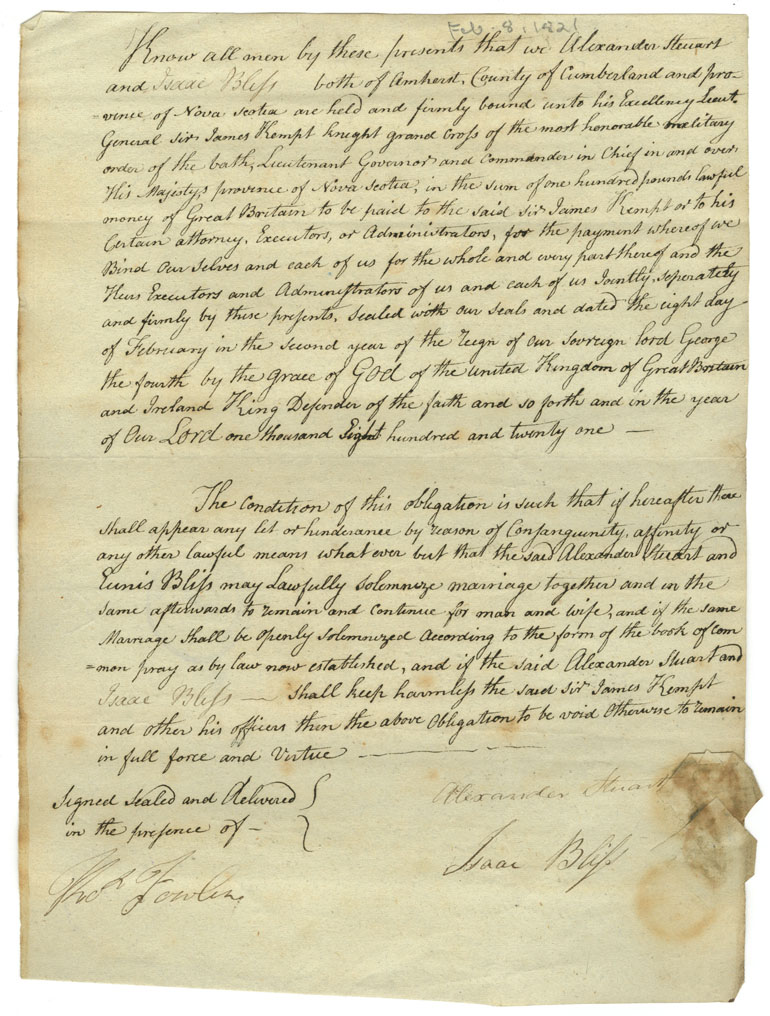 Feb. 8, 1821
Know all men by these presents that we Alexander Steuart
and Isaac Bliss both of Amherst, County of Cumberland and pro-
=vence of Nova Scotia are held and firmly bound unto his Excellency Lieut.
General Sir James Kempt knight grand Cross of the most honorable military
order of the bath, Lieutenant Governor and Commander in Chief in and over
His Majestys provence of Nova Scotia, in the sum of one hundred pounds lawful
money of Great Britain to be paid to the said Sir James Kempt or to his
Certain attorney, Executors, or Administrators, for the payment whereof we
Bind Our Selves and each of us for the whole and every part thereof and the
Heirs Executors and Administrators of us and each of us Jointly, seperately
and firmly by these presents, Sealed with our seals and dated the eight day
of February in the second year of the Reign of Our Sovreign lord George
the fourth by the Grace of God of the united Kingdom of Great Britain
and Ireland King Defender of the faith and so forth and in the year
of Our Lord one thousand Eight hundred and twenty one —
The Condition of this obligation is such that if hereafter there
shall appear any let or hinderance by reason of Consanguinity, affinity or
any other lawful means what ever but that the said Alexander Stuart and
Eunis Bliss may Lawfully Solemnize marriage together and in the
same afterwards to remain and Continue for man and wife, and if the same
Marriage Shall be Openly Solemnized According to the form of the book of Com
=mon pray as by law now established, and if the said Alexander Stuart and
Isaac Bliss — shall keep harmless the said Sir James Kempt
and other his officers then the above Obligation to be void Otherwise to remain
in full force and Virtue —
Signed Sealed and Delivered
in the presence of —
Alexander Stuart
Isaac Bliss
Thos Fowler